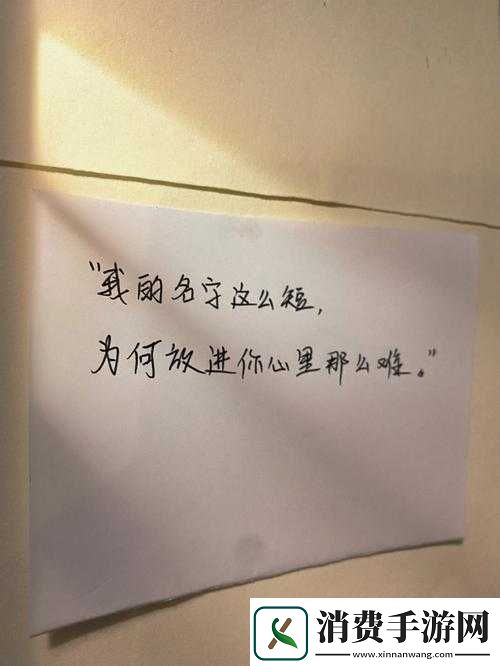 “我的名字这么短，
为何放进你心里那么难。”
消费手游网
www.xinnanwang.com